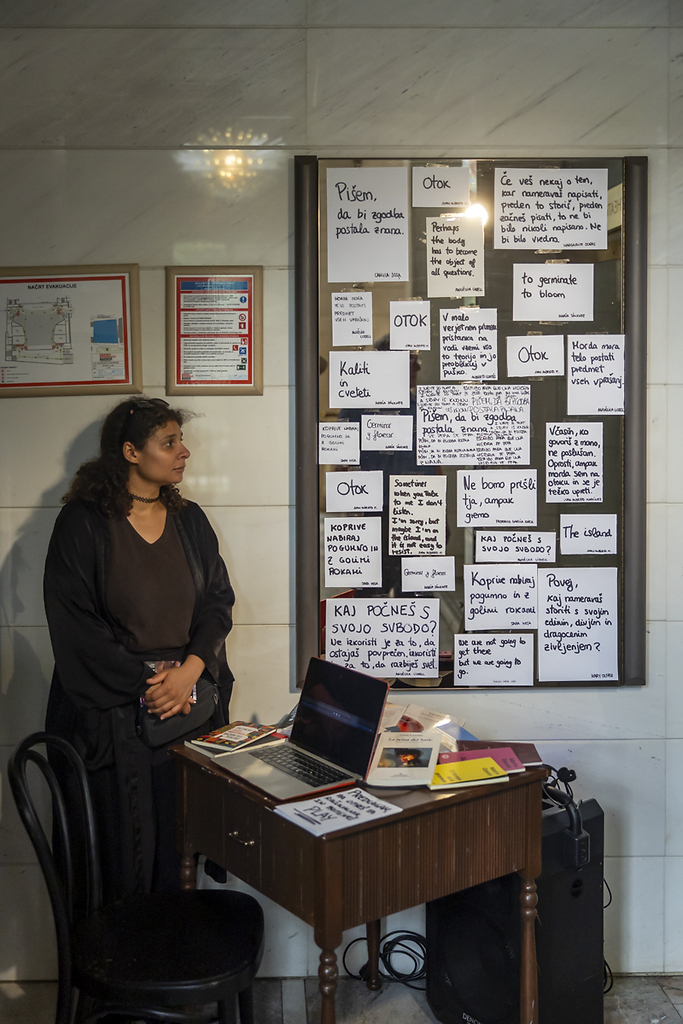 NAČRT EVAKUACIJE
Pišem,
da bi zgodba
postala znana.
Otok
Če veš nekaj o tem,
kar nameravaš napisati,
preden to storiš, preden
začneš pisati, to ne bi
bilo nikoli napisano. Ne
bi bilo vredno.
Perhaps
the body
has to become
the object of
all questions.
to germinate
to bloom
OTOK
V malo
verjetnem primeru
pristanka na
vodi vzemi vso
to teorijo in jo
Otok
Morda mora
telo postati
predmet
vseh vprašanj.
Kaliti
in
cveteti
Pišem, da bi zgodba
postala znana.
KOPRIVE NABIRAJ
POGUMNO IN Z
GOLIMI
ROKAMI
Germinar
y florecer
Včasih, ko
govoriš z mano,
ne poslušam.
Oprosti, ampak
morda sem na
otoku in se je
težko upreti.
Otok
Sometimes
when you talk
to me I don't
listen.
I'm sorry, but
maybe I'm on
the island, and
it is not easy to
resist.
Ne bomo prišli
tja, ampak
gremo
KOPRIVE
NABIRAJ
POGUMNO IN
Z GOLIMI
ROKAMI
KAJ POČNEŠ S
SVOJO SVOBODO?
The island
Germinar y florecer
Koprive nabiraj
pogumno in z
golimi rokami
Povej,
kaj nameravaš
storiti s svojim
edinim, divjim in
dragocenim
življenjem?
MARY OLIVER
KAJ POČNEŠ S
SVOJO SVOBODO?
Če izkoristi je za to, da
ostajaš povprečen, izkoristi
za to, da razbiješ svet.
we are not going to
get there
but we are going to
go.
PLAY
DENON